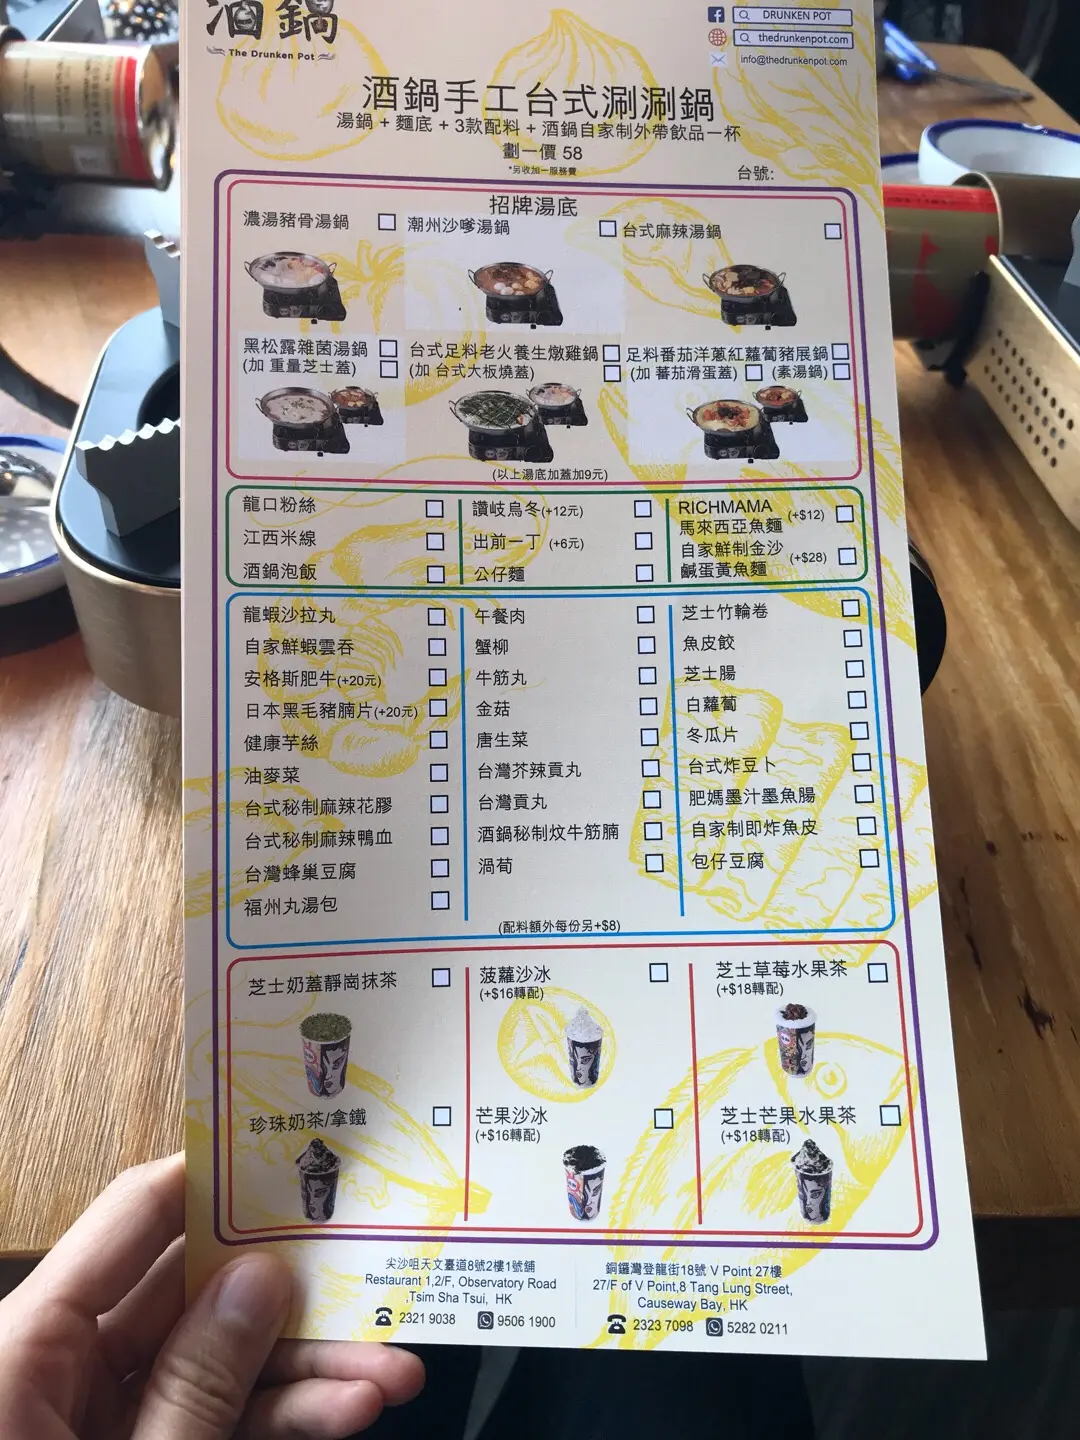 酒鍋
The Drunken Pot
DRUNKEN POT
thedrunkenpot.com
info@thedrunkenpot.com
酒鍋手工台式涮涮鍋
湯鍋 + 麵底 + 3款配料 + 酒鍋自家制外帶飲品一杯
劃一價 58
*另收加一服務費
台號:
招牌湯底
濃湯豬骨湯鍋
潮州沙嗲湯鍋
台式麻辣湯鍋
黑松露雜菌湯鍋
(加 重量芝士蓋)
台式足料老火養生燉雞鍋
(加 台式大板燒蓋)
足料番茄洋蔥紅蘿蔔豬展鍋
(加 蕃茄滑蛋蓋)
(素湯鍋)
(以上湯底加蓋加9元)
龍口粉絲
江西米線
酒鍋泡飯
讚岐烏冬(+12元)
出前一丁 (+6元)
公仔麵
RICHMAMA
馬來西亞魚麵
(+$12)
自家鮮制金沙
鹹蛋黃魚麵
(+$28)
龍蝦沙拉丸
自家鮮蝦雲吞
安格斯肥牛(+20元)
日本黑毛豬腩片(+20元)
健康芋絲
油麥菜
台式秘制麻辣花膠
台式秘制麻辣鴨血
台灣蜂巢豆腐
福州丸湯包
午餐肉
蟹柳
牛筋丸
金菇
唐生菜
台灣芥辣貢丸
台灣貢丸
酒鍋秘制炆牛筋腩
渦荀
芝士竹輪卷
魚皮餃
芝士腸
白蘿蔔
冬瓜片
台式炸豆卜
肥媽墨汁墨魚腸
自家制即炸魚皮
包仔豆腐
(配料額外每份另+$8)
芝士奶蓋靜崗抹茶
菠蘿沙冰
(+$16轉配)
芝士草莓水果茶
(+$18轉配)
珍珠奶茶/拿鐵
芒果沙冰
(+$16轉配)
芝士芒果水果茶
(+$18轉配)
尖沙咀天文臺道8號2樓1號舖
Restaurant 1,2/F, Observatory Road
,Tsim Sha Tsui, HK
2321 9038
9506 1900
銅鑼灣登龍街18號 V Point 27樓
27/F of V Point,8 Tang Lung Street,
Causeway Bay, HK
2323 7098
5282 0211